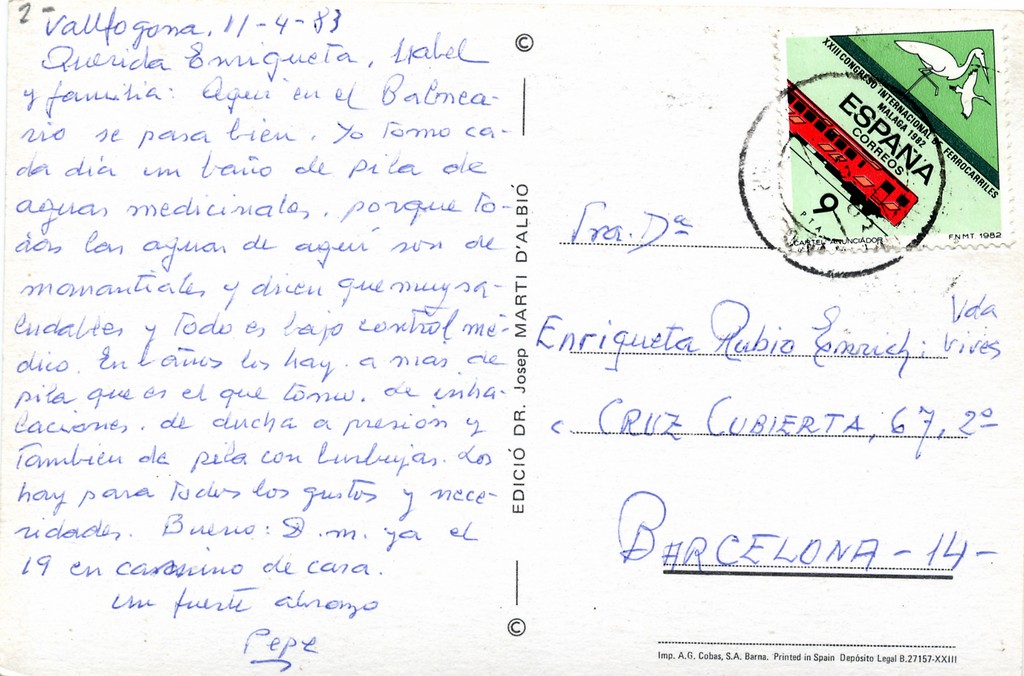 2-
Vallfogona, 11-4-83
Querida Enriqueta, Isabel
y familia: Aqui en el Balnea-
rio se pasa bien. Yo tomo ca-
da dia un baño de pila de
aguas medicinales, porque to-
das las aguas de aquí son de
manantiales y dicen que muy sa-
ludables y todo es bajo control mé-
dico. En baños los hay. a mas de
pila que es el que tomo. de inha-
laciones. de ducha a presión y
tambien de pila con burbujas. Los
hay para todos los gustos y nece-
sidades. Bueno: D. m. ya el
19 en camino de casa.
Un fuerte abrazo
Pepe
©
EDICIÓ DR. Josep MARTI D'ALBIÓ
©
XXIII CONGRESO INTERNACIONAL DE FERROCARRILES
MALAGA 1982
ESPAÑA
CORREOS
9
PTA
CARTEL ANUNCIADOR
F.N.M.T. 1982
Sra. Dª
Vda
Enriqueta Rubio Emrich: Vives
c. CRUZ CUBIERTA, 67, 2º
BARCELONA - 14 -
Imp. A.G. Cobas, S.A. Barna. Printed in Spain Depósito Legal B.27157-XXIII